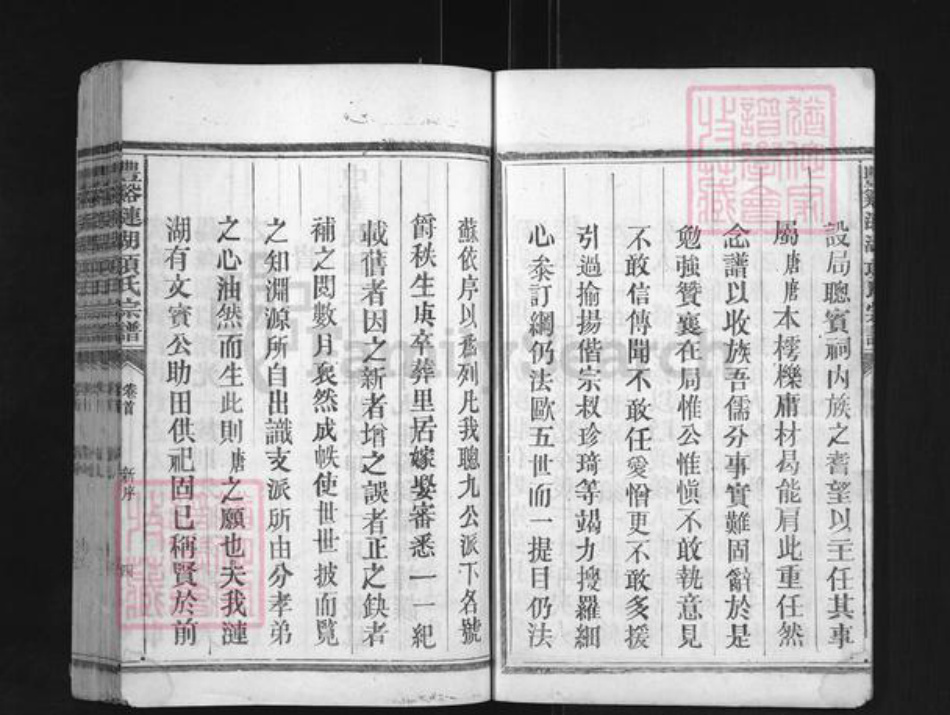 設局聰賓祠內族之耆望以主任其事
屬唐唐本樗櫟庸材曷能肩此重任然
念譜以收族吾儒分事實難固辭於是
勉強贊襄在局惟公惟慎不敢執意見
不敢信傳聞不敢任愛憎更不敢妄援
引過揄揚偕宗叔珍琦等竭力搜羅細
心叅訂綱仍法歐五世而一提目仍法
蘇依序以爲列凡我聰九公派下名號
爵秩生庚卒葬里居嫁娶審悉一一紀
載舊者因之新者增之誤者正之缺者
補之閱數月裒然成帙使世世披而覽
之知淵源所自出識支派所由分孝弟
之心油然而生此則唐之願也夫我漣
湖有文賓公助田供祀固已稱賢於前
豐谿漣湖項氏宗譜
卷首
新序
FamilySearch